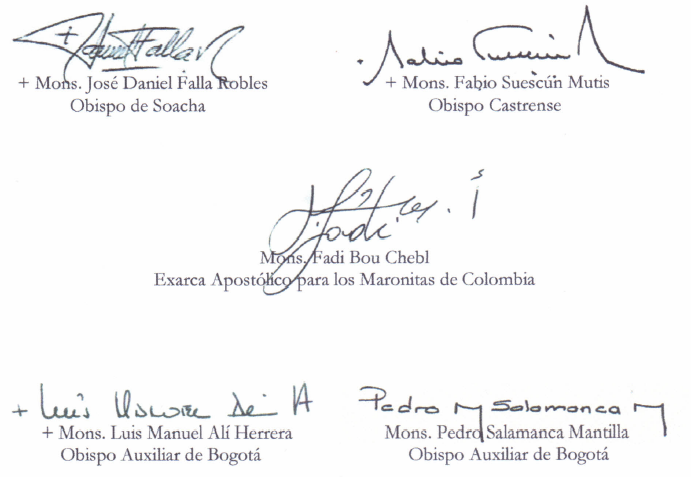 + Mons. José Daniel Falla Robles
Obispo de Soacha
+ Mons. Fabio Suescún Mutis
Obispo Castrense
Fadi
Mons. Fadi Bou Chebl
Exarca Apostólico para los Maronitas de Colombia
+ Luis Manuel Alí H
+ Mons. Luis Manuel Alí Herrera
Obispo Auxiliar de Bogotá
Pedro M Salamanca M
Mons. Pedro Salamanca Mantilla
Obispo Auxiliar de Bogotá